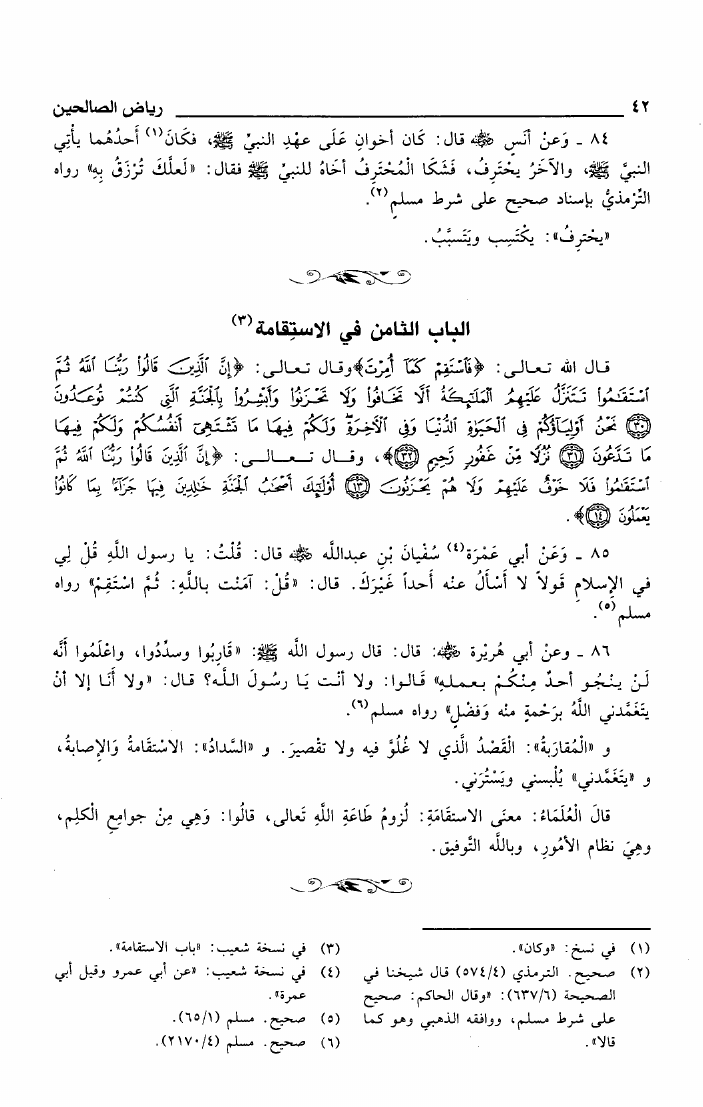 ٤٢ رياض الصالحين
٨٤ ـ وَعنْ أنَسٍ ﷺ قال: كَان أخوانِ عَلَى عهْدِ النبيِّ ﷺ، فكَانَ(١) أَحدُهُما يأْتِي
النبيَّ ﷺ، والآخَرُ يحْتَرِفُ، فَشَكَا الْمُحْتَرِفُ أخاهُ للنبيِّ ﷺ فقال: «لَعلَّكَ تُرْزَقُ بِهِ» رواه
التِّرْمذيُّ بإسناد صحيح على شرط مسلمٍ(٢).
«يحْترِفُ»: يكْتَسِب ويَتَسبَّبُ.
الباب الثامن في الاستِقامة(٣)
قال الله تعالى: ﴿فَٱسۡتَقِمۡ كَمَآ أُمِرۡتَ﴾وقال تعالى: ﴿إِنَّ ٱلَّذِينَ قَالُواْ رَبُّنَا ٱللَّهُ ثُمَّ
ٱسۡتَقَٰمُواْ تَتَنَزَّلُ عَلَيۡهِمُ ٱلۡمَلَٰٓئِكَةُ أَلَّا تَخَافُواْ وَلَا تَحۡزَنُواْ وَأَبۡشِرُواْ بِٱلۡجَنَّةِ ٱلَّتِي كُنتُمۡ تُوعَدُونَ
٣٠ نَحۡنُ أَوۡلِيَآؤُكُمۡ فِي ٱلۡحَيَوٰةِ ٱلدُّنۡيَا وَفِي ٱلۡأٓخِرَةِۖ وَلَكُمۡ فِيهَا مَا تَشۡتَهِيٓ أَنفُسُكُمۡ وَلَكُمۡ فِيهَا
مَا تَدَّعُونَ ٣١ نُزُلًا مِّنۡ غَفُورٍ رَّحِيمٍ ٣٢﴾، وقال تعالى: ﴿إِنَّ ٱلَّذِينَ قَالُواْ رَبُّنَا ٱللَّهُ ثُمَّ
ٱسۡتَقَٰمُواْ فَلَا خَوۡفٌ عَلَيۡهِمۡ وَلَا هُمۡ يَحۡزَنُونَ ١٣ أُوْلَٰٓئِكَ أَصۡحَٰبُ ٱلۡجَنَّةِ خَٰلِدِينَ فِيهَا جَزَآءَۢ بِمَا كَانُواْ
يَعۡمَلُونَ ١٤﴾.
٨٥ ـ وَعَنْ أبي عَمْرَة(٤) سُفْيانَ بْنِ عبدالله ﷺ قال: قُلْتُ: يا رسول اللَّهِ قُلْ لِي
في الإِسلامِ قَولاً لا أَسْأَلُ عنْه أحداً غَيْرَكَ. قال: «قُلْ: آمَنْت باللَّهِ: ثُمَّ اسْتَقِمْ» رواه
مسلم(٥).
٨٦ ـ وعنْ أبي هُريْرة ﷺ: قال: قال رسول الله ﷺ: «قَاربُوا وسدِّدُوا، واعْلَمُوا أَنَّه
لَنْ ينْجُو أحدٌ مِنْكُمْ بعملهِ» قَالوا: ولا أنْت يَا رسُولَ اللَّه؟ قال: «ولا أَنَا إلا أنْ
يتَغَمَّدني اللَّهُ برَحْمةٍ منْه وَفضْلٍ» رواه مسلم(٦).
و «الْمُقارَبةُ»: الْقَصْدُ الَّذي لا غُلُوَّ فيه ولا تقْصيرَ. و «السَّدادُ»: الاسْتقَامةُ وَالإصابةُ،
و «يتَغَمَّدني» يُلْبسني ويَسْتُرَني.
قالَ الْعُلَمَاءُ: معنَى الاستقَامَةِ: لُزومُ طَاعَةِ اللَّهِ تَعالى، قالُوا: وَهِي مِنْ جوامِعِ الْكلِم،
وهِيَ نظَام الأمُورِ، وباللَّه التَّوفيق.
(١) في نسخ: «وكان».
(٢) صحيح. الترمذي (٥٧٤/٤) قال شيخنا في
الصحيحة (٦٣٧/٦): «وقال الحاكم: صحيح
على شرط مسلم، ووافقه الذهبي وهو كما
قالا».
(٣) في نسخة شعيب: «باب الاستقامة».
(٤) في نسخة شعيب: «عن أبي عمرو وقيل أبي
عمرة».
(٥) صحيح. مسلم (٦٥/١).
(٦) صحيح. مسلم (٢١٧٠/٤).